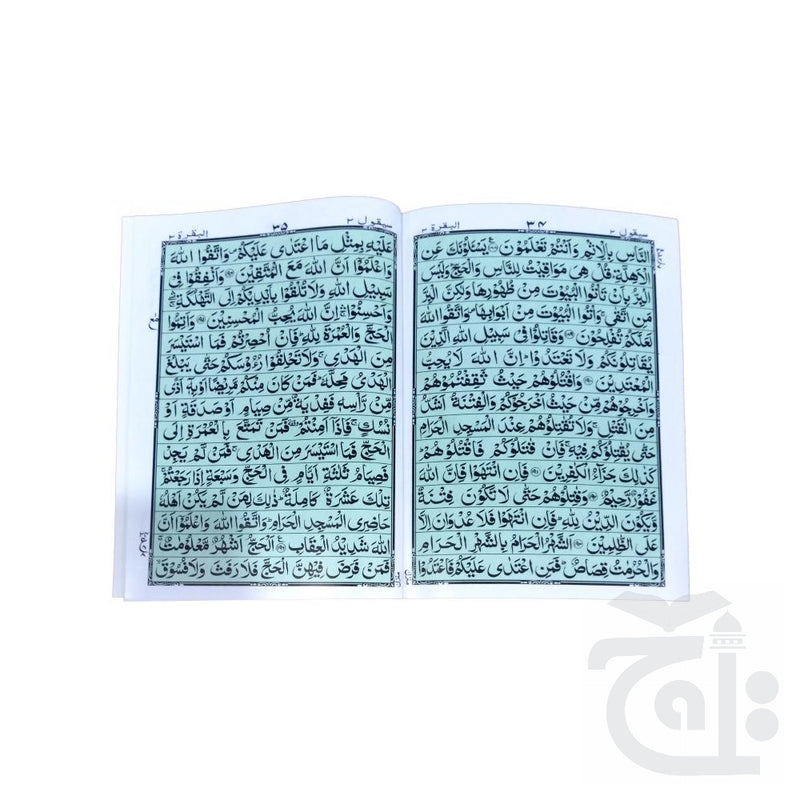 سيقول ٢ ٣٤ البقرة ٢
النَّاسِ بِالْاِثْمِ وَاَنْتُمْ تَعْلَمُوْنَ ۞ يَسْـَٔلُوْنَكَ عَنِ
الْاَهِلَّةِ ؕ قُلْ هِىَ مَوَاقِيْتُ لِلنَّاسِ وَالْحَجِّ ؕ وَلَيْسَ
الْبِرُّ بِاَنْ تَاْتُوا الْبُيُوْتَ مِنْ ظُهُوْرِهَا وَلٰكِنَّ الْبِرَّ
مَنِ اتَّقٰى ۚ وَاْتُوا الْبُيُوْتَ مِنْ اَبْوَابِهَا ۪ وَاتَّقُوا اللّٰهَ
لَعَلَّكُمْ تُفْلِحُوْنَ ۞ وَقَاتِلُوْا فِىْ سَبِيْلِ اللّٰهِ الَّذِيْنَ
يُقَاتِلُوْنَكُمْ وَلَا تَعْتَدُوْا ؕ اِنَّ اللّٰهَ لَا يُحِبُّ
الْمُعْتَدِيْنَ ۞ وَاقْتُلُوْهُمْ حَيْثُ ثَقِفْتُمُوْهُمْ
وَاَخْرِجُوْهُمْ مِّنْ حَيْثُ اَخْرَجُوْكُمْ وَالْفِتْنَةُ اَشَدُّ
مِنَ الْقَتْلِ ۚ وَلَا تُقٰتِلُوْهُمْ عِنْدَ الْمَسْجِدِ الْحَرَامِ
حَتّٰى يُقٰتِلُوْكُمْ فِيْهِ ۚ فَاِنْ قٰتَلُوْكُمْ فَاقْتُلُوْهُمْ ؕ
كَذٰلِكَ جَزَآءُ الْكٰفِرِيْنَ ۞ فَاِنِ انْتَهَوْا فَاِنَّ اللّٰهَ
غَفُوْرٌ رَّحِيْمٌ ۞ وَقٰتِلُوْهُمْ حَتّٰى لَا تَكُوْنَ فِتْنَةٌ
وَّيَكُوْنَ الدِّيْنُ لِلّٰهِ ؕ فَاِنِ انْتَهَوْا فَلَا عُدْوَانَ اِلَّا
عَلَى الظّٰلِمِيْنَ ۞ اَلشَّهْرُ الْحَرَامُ بِالشَّهْرِ الْحَرَامِ
وَالْحُرُمٰتُ قِصَاصٌ ؕ فَمَنِ اعْتَدٰى عَلَيْكُمْ فَاعْتَدُوْا
سيقول ٢ ٣٥ البقرة ٢
عَلَيْهِ بِمِثْلِ مَا اعْتَدٰى عَلَيْكُمْ ۪ وَاتَّقُوا اللّٰهَ
وَاعْلَمُوْٓا اَنَّ اللّٰهَ مَعَ الْمُتَّقِيْنَ ۞ وَاَنْفِقُوْا فِىْ
سَبِيْلِ اللّٰهِ وَلَا تُلْقُوْا بِاَيْدِيْكُمْ اِلَى التَّهْلُكَةِ
وَاَحْسِنُوْا ۛ اِنَّ اللّٰهَ يُحِبُّ الْمُحْسِنِيْنَ ۞ وَاَتِمُّوا
الْحَجَّ وَالْعُمْرَةَ لِلّٰهِ ؕ فَاِنْ اُحْصِرْتُمْ فَمَا اسْتَيْسَرَ
مِنَ الْهَدْىِ ۚ وَلَا تَحْلِقُوْا رُءُوْسَكُمْ حَتّٰى يَبْلُغَ
الْهَدْىُ مَحِلَّهٗ ؕ فَمَنْ كَانَ مِنْكُمْ مَّرِيْضًا اَوْ بِهٖٓ اَذًى
مِّنْ رَّاْسِهٖ فَفِدْيَةٌ مِّنْ صِيَامٍ اَوْ صَدَقَةٍ اَوْ
نُسُكٍ ۚ فَاِذَآ اَمِنْتُمْ ۥ فَمَنْ تَمَتَّعَ بِالْعُمْرَةِ اِلَى
الْحَجِّ فَمَا اسْتَيْسَرَ مِنَ الْهَدْىِ ۚ فَمَنْ لَّمْ يَجِدْ
فَصِيَامُ ثَلٰثَةِ اَيَّامٍ فِى الْحَجِّ وَسَبْعَةٍ اِذَا رَجَعْتُمْ ؕ
تِلْكَ عَشَرَةٌ كَامِلَةٌ ؕ ذٰلِكَ لِمَنْ لَّمْ يَكُنْ اَهْلُهٗ
حَاضِرِى الْمَسْجِدِ الْحَرَامِ ؕ وَاتَّقُوا اللّٰهَ وَاعْلَمُوْٓا اَنَّ
اللّٰهَ شَدِيْدُ الْعِقَابِ ۞ اَلْحَجُّ اَشْهُرٌ مَّعْلُوْمٰتٌ ۚ
فَمَنْ فَرَضَ فِيْهِنَّ الْحَجَّ فَلَا رَفَثَ وَلَا فُسُوْقَ ۙ